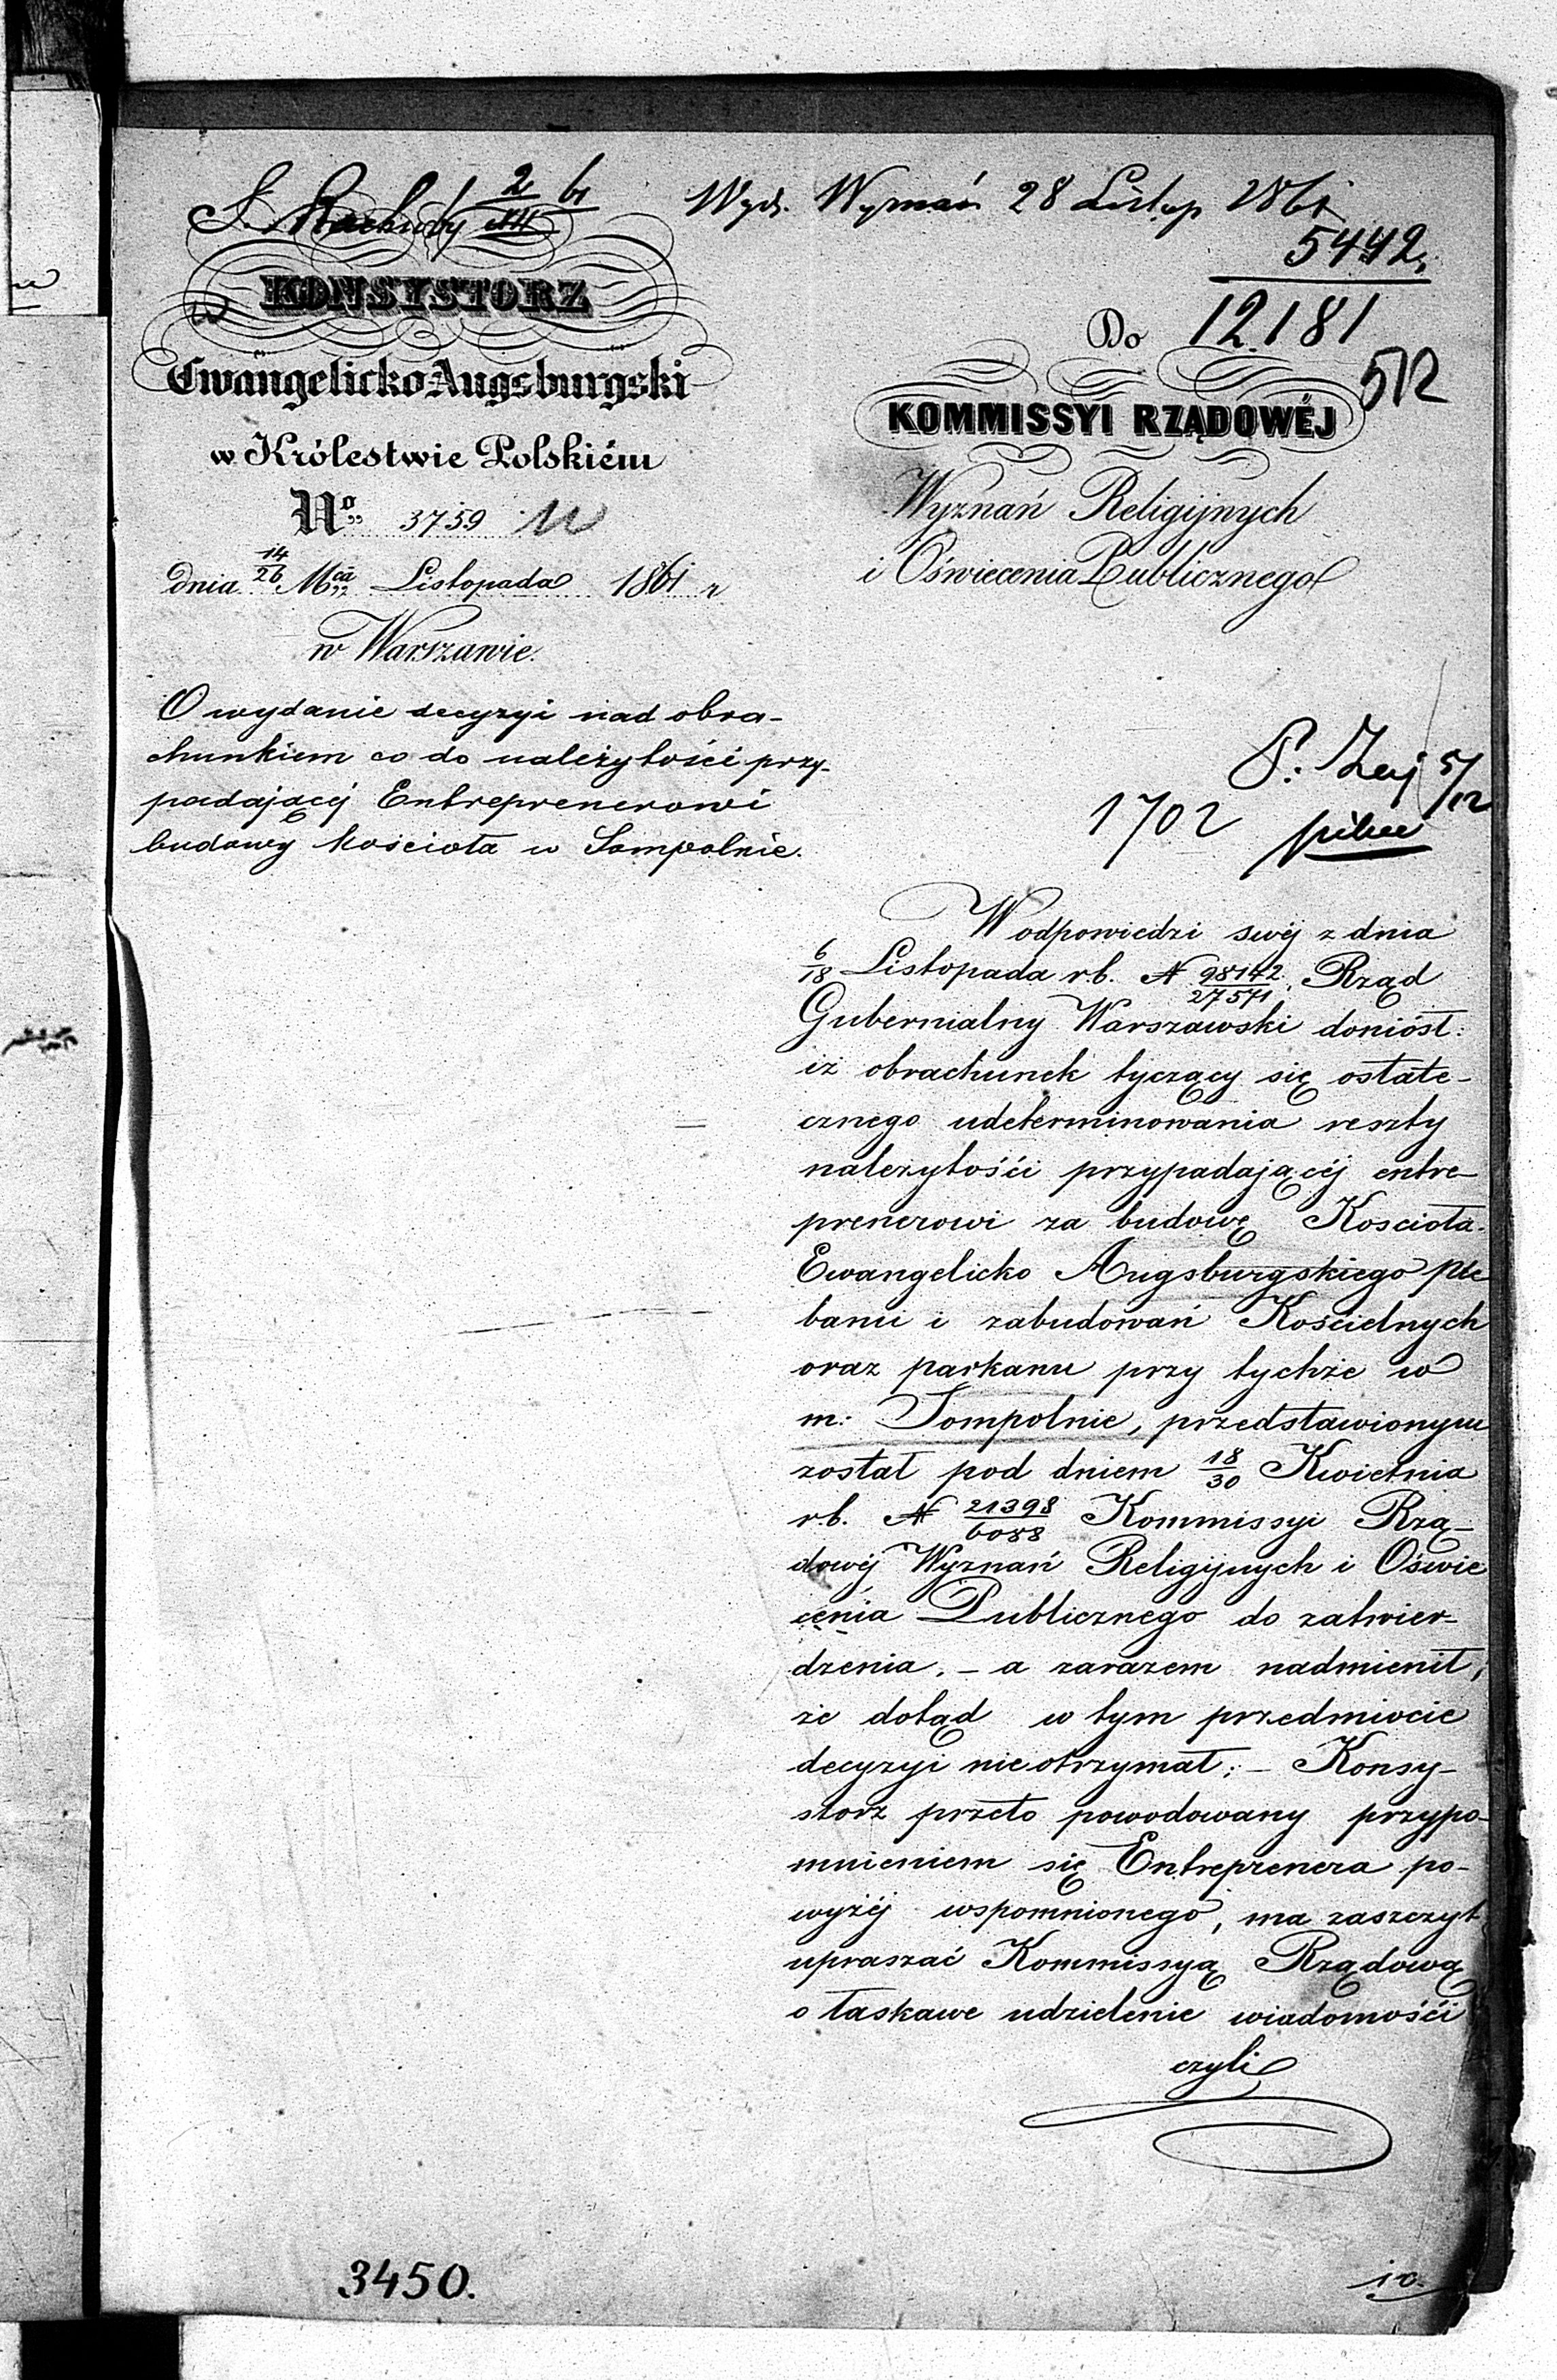 2 61
XII
Wyd. Wyznań 28 Listop 1861
5442
KONSYSTORZ
Ewangelicko-Augsburgski
w Królestwie Polskiém
No 3759
dnia 14/26 Mca Listopada 1861 r
w Warszawie.
O wydanie decyzyi nad obra-
chunkiem co do należytości przy-
padającej Entreprenerowi
budowy kościoła w Sompolnie.
Do 12.181
512
KOMMISSYI RZĄDOWÉJ
Wyznań Religijnych
i Oświecenia Publicznego
5/12
1702 pilne
W odpowiedzi swéj z dnia
6/18 Listopada r.b. N 98142/27571, Rząd
Gubernialny Warszawski doniósł:
iż obrachunek tyczący się ostate-
cznego udeterminowania reszty
należytości przypadającéj entre-
prenerowi za budowę Kościoła
Ewangelicko Augsburgskiego ple
banii i zabudowań Kościelnych
oraz parkanu przy tychże w
m: Sompolnie, przedstawionym
został pod dniem 18/30 Kwietnia
r.b. N 21398/6088 Kommissyi Rzą-
dowéj Wyznań Religijnych i Oświe
cenia Publicznego do zatwier-
dzenia. – a zarazem nadmienił,
że dotąd w tym przedmiocie
decyzyi nie otrzymał; – Konsy-
storz przeto powodowany przypo-
mnieniem się Entreprenera po-
wyżéj wspomnionego, ma zaszczyt
upraszać Kommissyą Rządową
o łaskawe udzielenie wiadomości
czyli
3450.